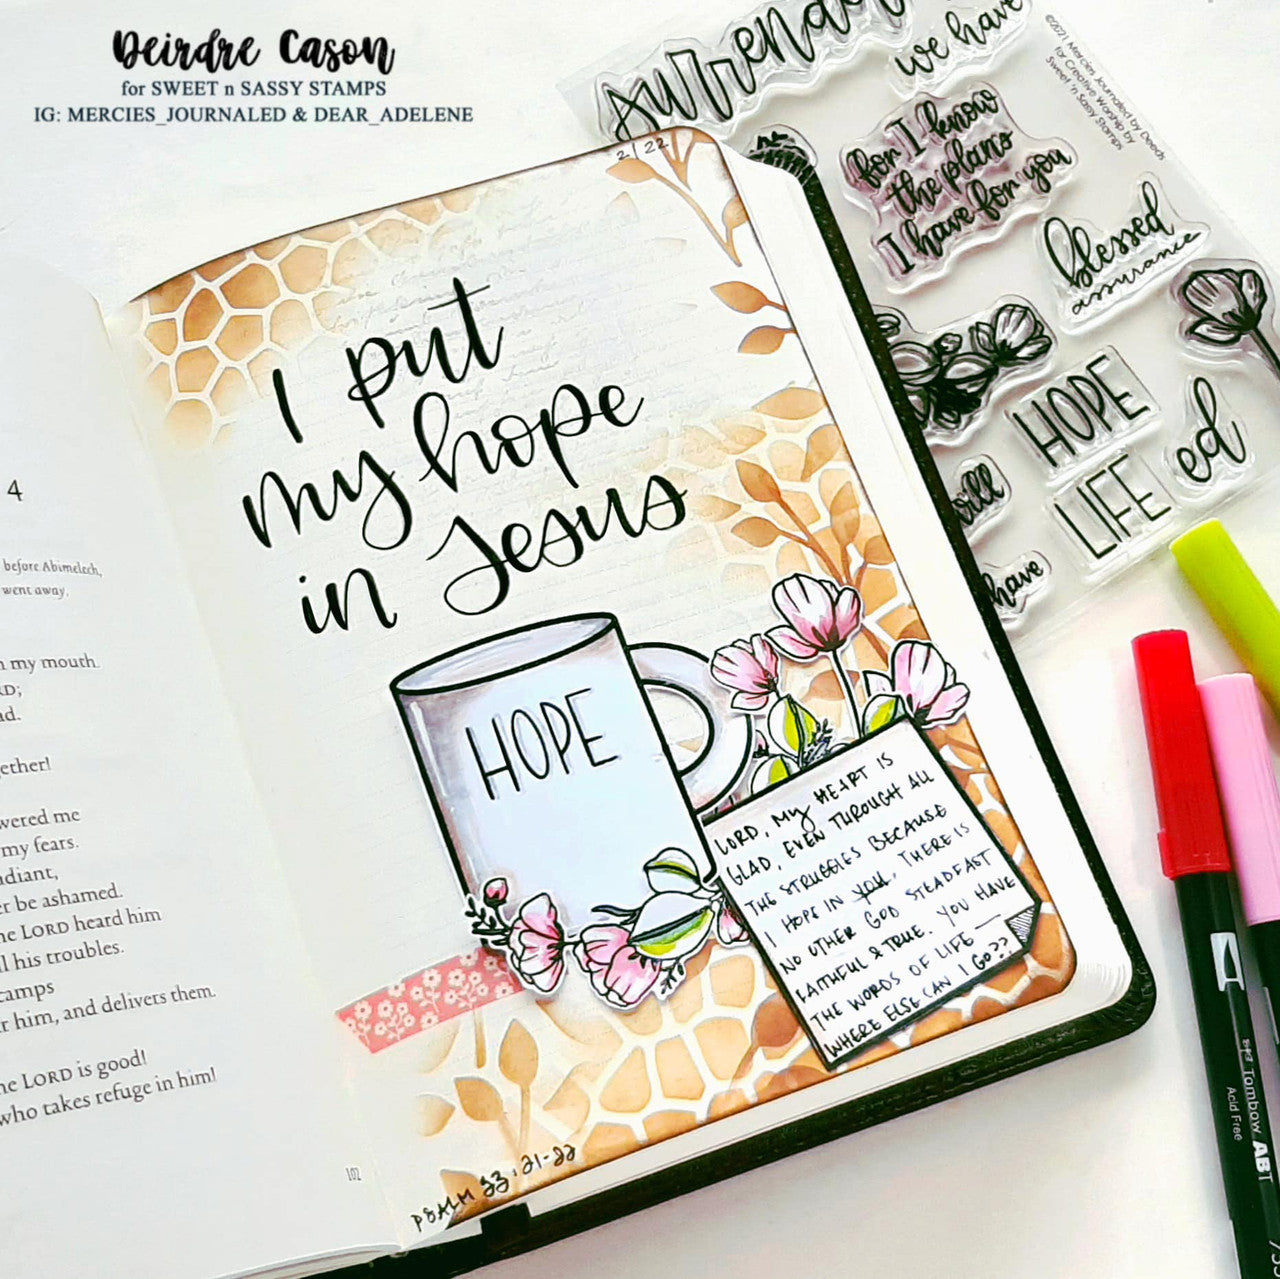 Deirdre Cason
for SWEET n SASSY STAMPS
IG: MERCIES_JOURNALED & DEAR_ADELENE
surrend
we have
©2021 Mercies Journaled by Deeds
for Creative Worship by
Sweet 'n Sassy Stamps
for I know
the plans
I have for you
blessed
assurance
HOPE
LIFE
ed
will
have
2/22
I put
my hope
in Jesus
HOPE
LORD, MY HEART IS
GLAD, EVEN THROUGH ALL
THE STRUGGLES BECAUSE
I HOPE IN YOU. THERE IS
NO OTHER GOD STEADFAST
FAITHFUL & TRUE. YOU HAVE
THE WORDS OF LIFE —
WHERE ELSE CAN I GO??
PSALM 33:21-22
4
before Abimelech,
went away.
my mouth.
ether!
wered me
my fears.
diant,
be ashamed.
LORD heard him
his troubles.
camps
him, and delivers them.
LORD is good!
who takes refuge in him!
102
Tombow ABT
Acid Free